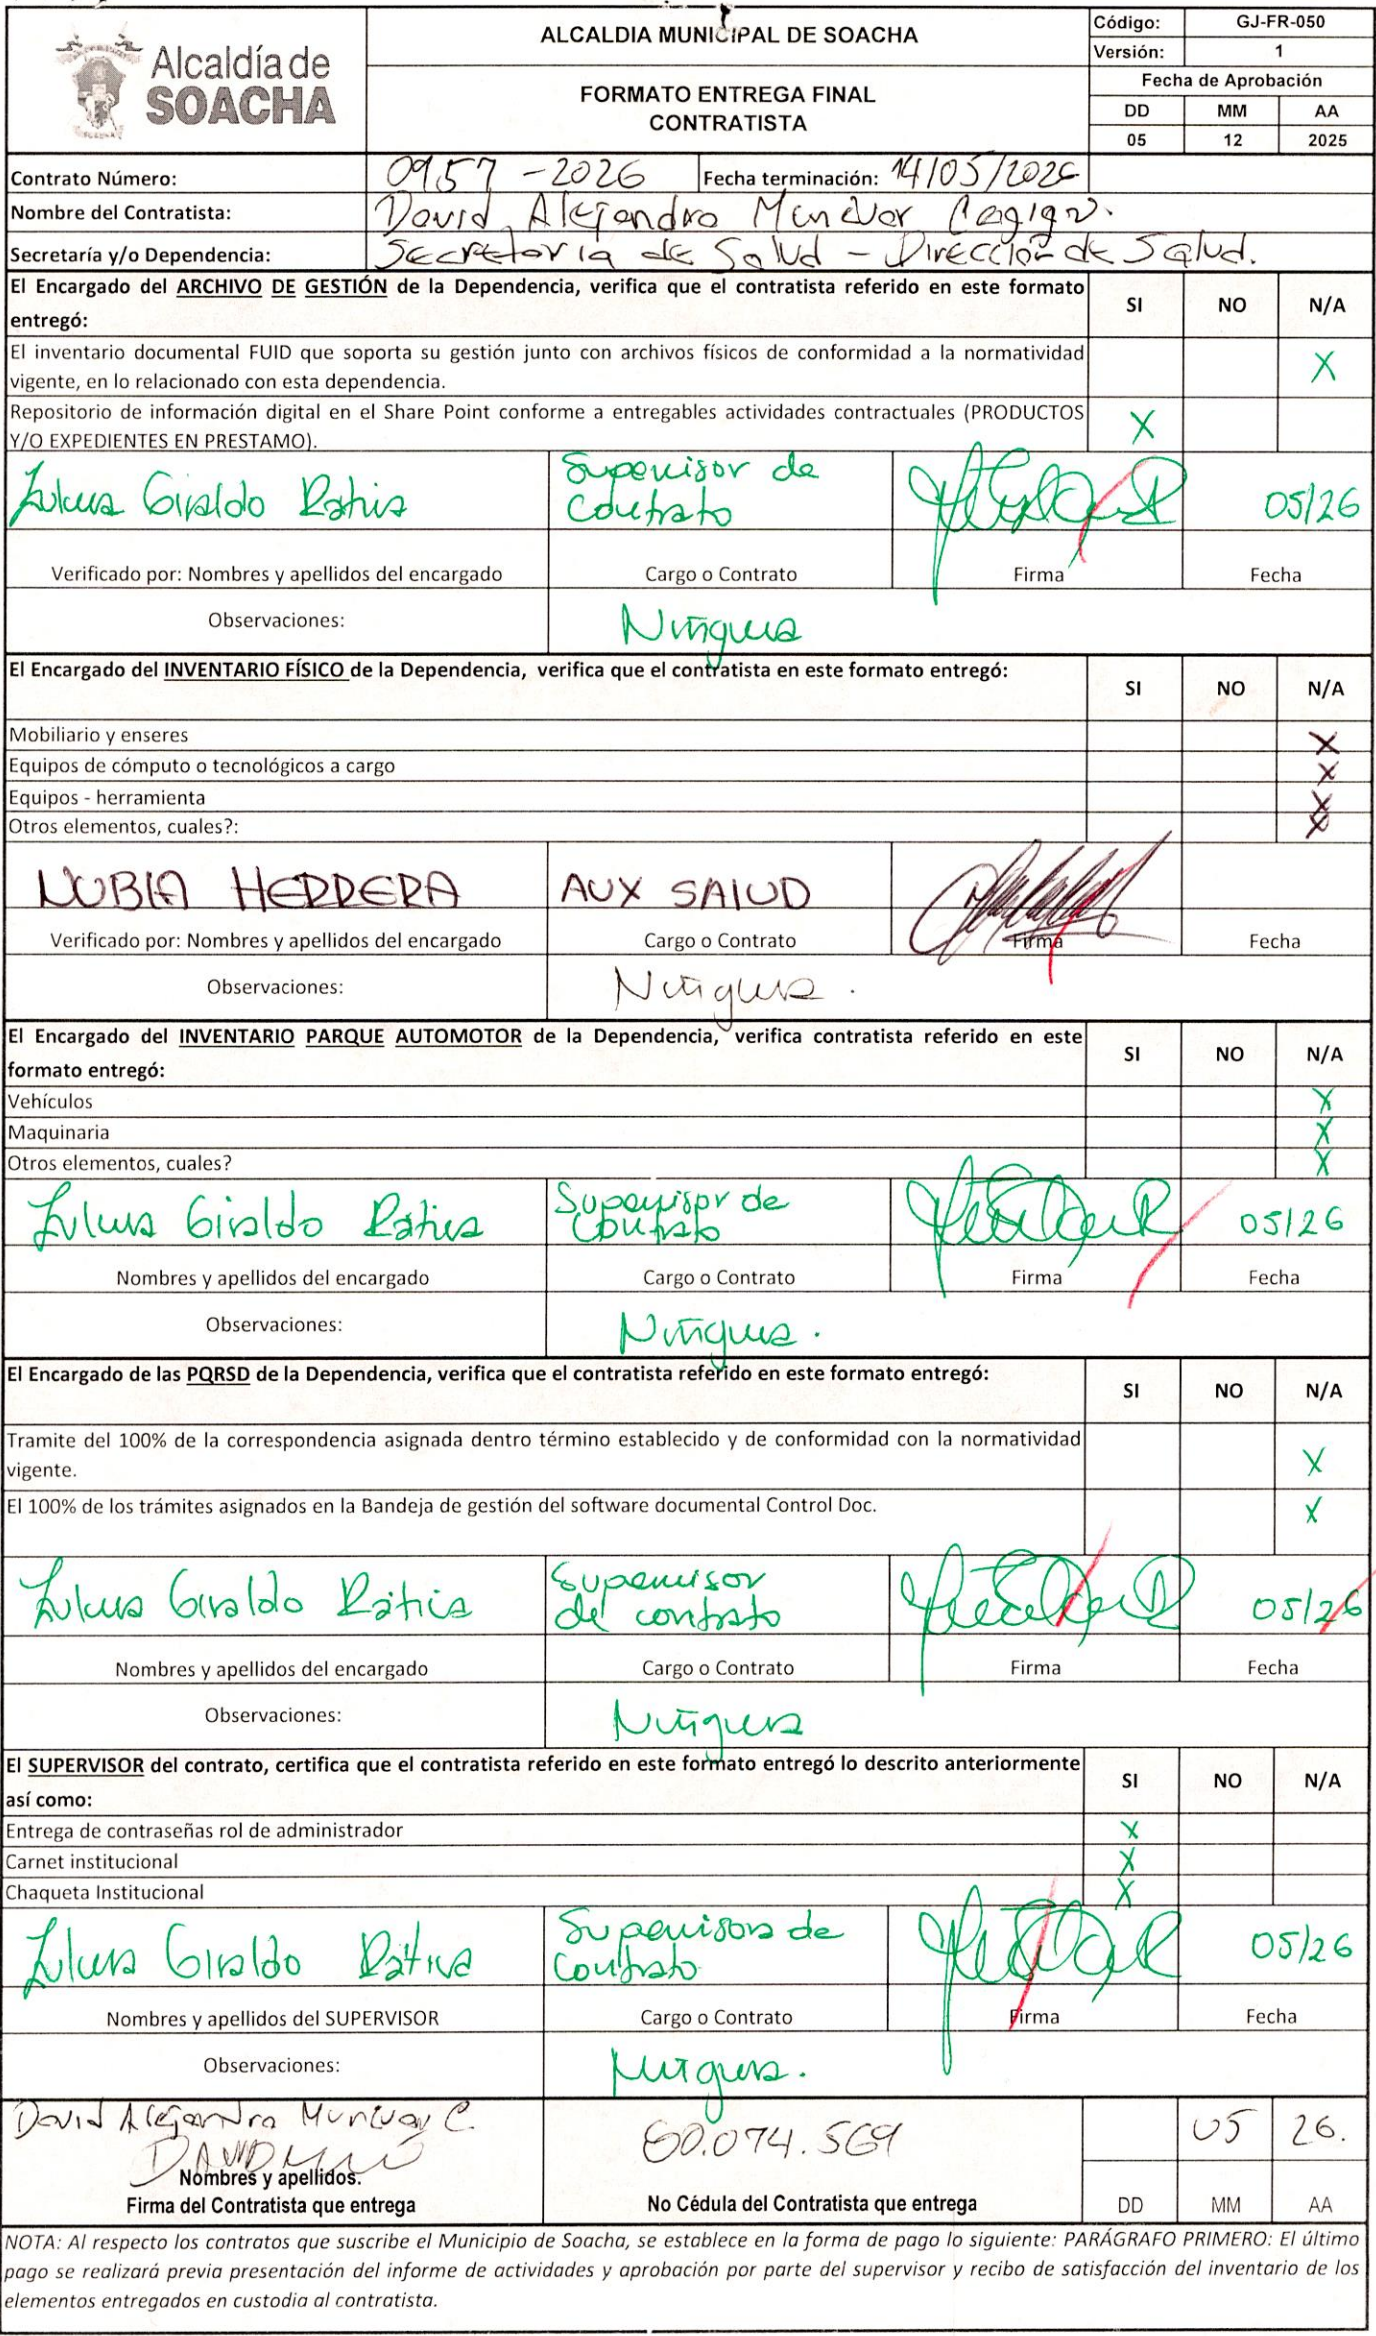 Alcaldía de
SOACHA
ALCALDIA MUNICIPAL DE SOACHA
FORMATO ENTREGA FINAL
CONTRATISTA
Código: GJ-FR-050
Versión: 1
Fecha de Aprobación
DD MM AA
05 12 2025
Contrato Número: 0957-2026 Fecha terminación: 14/05/2026
Nombre del Contratista: David Alejandro
Secretaría y/o Dependencia: Secretaria de Salud - Dirección de Salud.
El Encargado del ARCHIVO DE GESTIÓN de la Dependencia, verifica que el contratista referido en este formato
entregó:
SI NO N/A
El inventario documental FUID que soporta su gestión junto con archivos físicos de conformidad a la normatividad
vigente, en lo relacionado con esta dependencia.
X
Repositorio de información digital en el Share Point conforme a entregables actividades contractuales (PRODUCTOS
Y/O EXPEDIENTES EN PRESTAMO).
X
Giraldo Rátiva
Supervisor de
Contrato
05/26
Verificado por: Nombres y apellidos del encargado Cargo o Contrato Firma Fecha
Observaciones: Ninguna
El Encargado del INVENTARIO FÍSICO de la Dependencia, verifica que el contratista en este formato entregó:
SI NO N/A
Mobiliario y enseres X
Equipos de cómputo o tecnológicos a cargo X
Equipos - herramienta X
Otros elementos, cuales?: X
NUBIA HERRERA AUX SALUD
Verificado por: Nombres y apellidos del encargado Cargo o Contrato Firma Fecha
Observaciones: Ninguna.
El Encargado del INVENTARIO PARQUE AUTOMOTOR de la Dependencia, verifica contratista referido en este
formato entregó:
SI NO N/A
Vehículos X
Maquinaria X
Otros elementos, cuales? X
Giraldo Rátiva
Supervisor de
Contrato
05/26
Nombres y apellidos del encargado Cargo o Contrato Firma Fecha
Observaciones: Ninguna.
El Encargado de las PQRSD de la Dependencia, verifica que el contratista referido en este formato entregó:
SI NO N/A
Tramite del 100% de la correspondencia asignada dentro término establecido y de conformidad con la normatividad
vigente.
X
El 100% de los trámites asignados en la Bandeja de gestión del software documental Control Doc. X
Giraldo Rátiva
Supervisor
de contrato
05/26
Nombres y apellidos del encargado Cargo o Contrato Firma Fecha
Observaciones: Ninguna
El SUPERVISOR del contrato, certifica que el contratista referido en este formato entregó lo descrito anteriormente
así como:
SI NO N/A
Entrega de contraseñas rol de administrador X
Carnet institucional X
Chaqueta Institucional X
Giraldo Rátiva
Supervisora de
Contrato
05/26
Nombres y apellidos del SUPERVISOR Cargo o Contrato Firma Fecha
Observaciones: Ninguna.
David Alejandro C.
05 26.
Nombres y apellidos.
Firma del Contratista que entrega No Cédula del Contratista que entrega DD MM AA
NOTA: Al respecto los contratos que suscribe el Municipio de Soacha, se establece en la forma de pago lo siguiente: PARÁGRAFO PRIMERO: El último
pago se realizará previa presentación del informe de actividades y aprobación por parte del supervisor y recibo de satisfacción del inventario de los
elementos entregados en custodia al contratista.